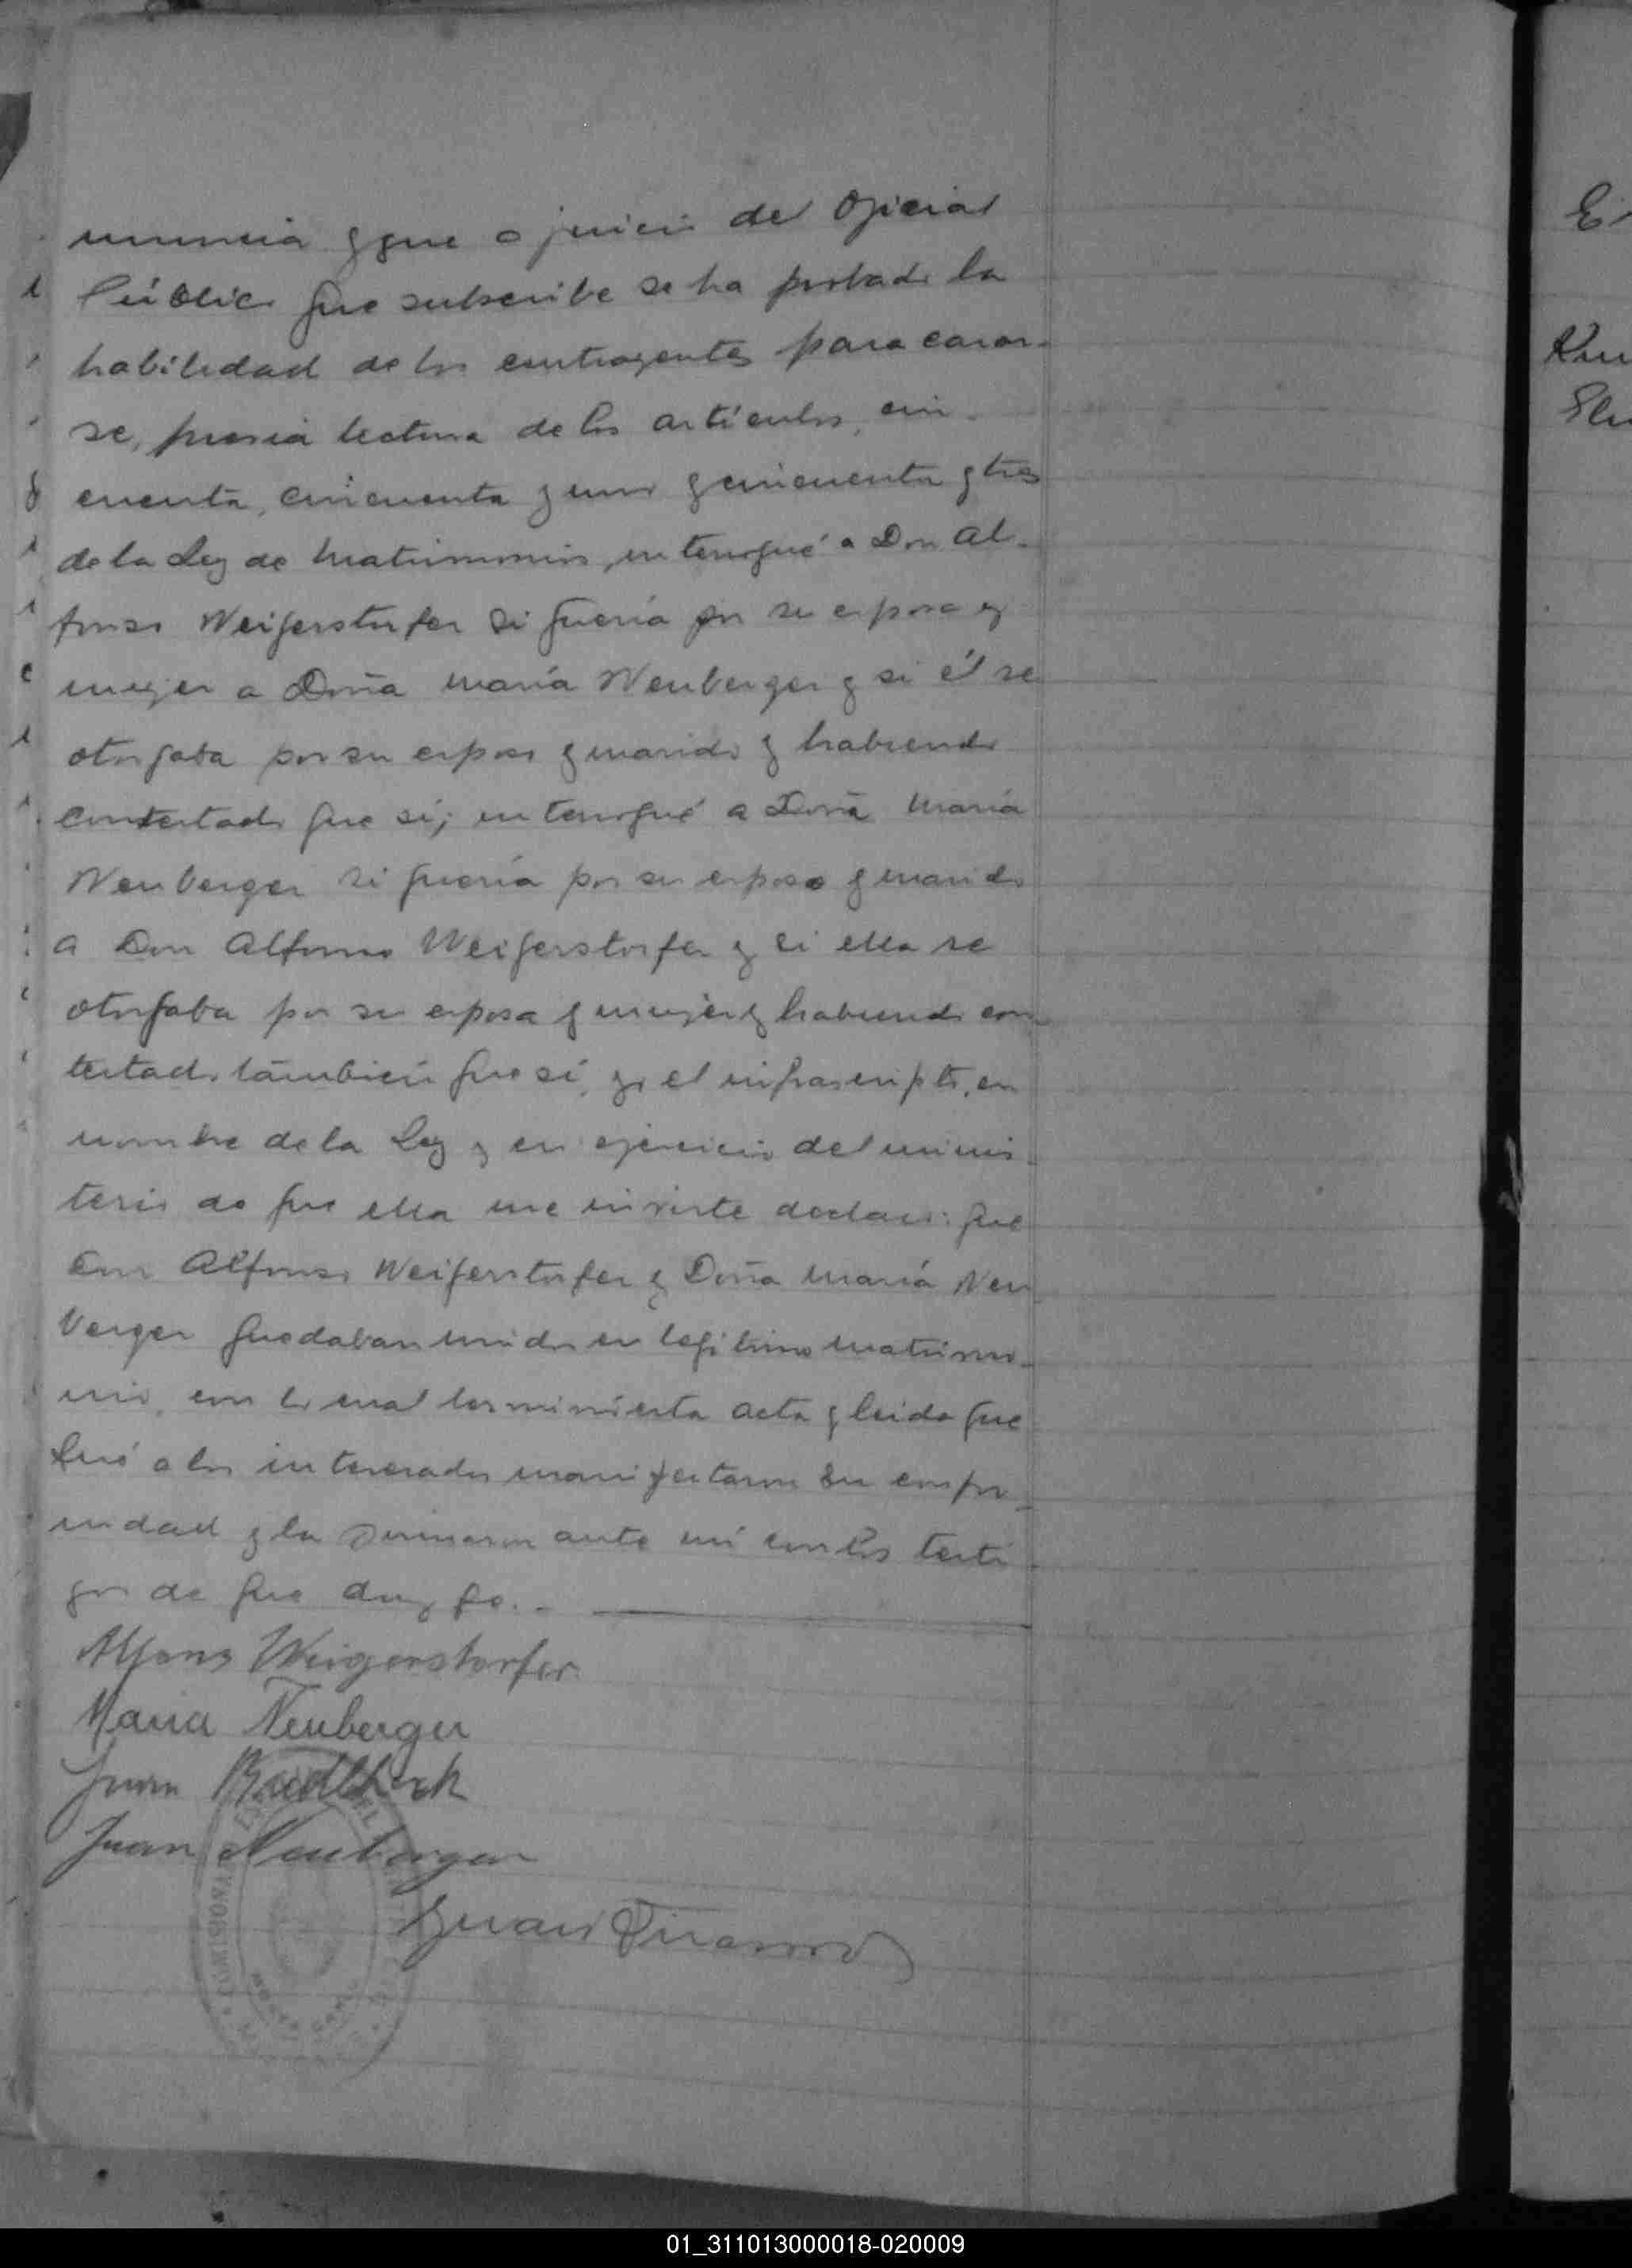 nuncia y que a juicio del Oficial
Público que subscribe se ha probado la
habilidad de los contrayentes para casar-
se, previa lectura de los artículos, cin-
cuenta, cincuenta y uno y cincuenta y tres
de la Ley de Matrimonio, interrogué a Don Al-
fonso Weigerstorfer si quería por su esposa y
mujer a Doña María Neuberger y si él se
otorgaba por su esposo y marido y habiendo
contestado que sí; interrogué a Doña María
Neuberger si quería por su esposo y marido
a Don Alfonso Weigerstorfer y si ella se
otorgaba por su esposa y mujer y habiendo con
testado también que sí, yo el infrascripto, en
nombre de la Ley y en ejercicio del minis-
terio de que ella me inviste declaro: que
Don Alfonso Weigerstorfer y Doña María Neu
berger quedaban unidos en legítimo matrimo-
nio, con lo cual terminó esta acta y leida que
fué a los interesados manifestaron su confor-
midad y la firmaron ante mí con los testi-
gos de que doy fe. -
Alfons Weigerstorfer
Maria Neuberger
Juan
Juan Neuberger
Juan
COMISIONA
E
Kru
01_311013000018-020009